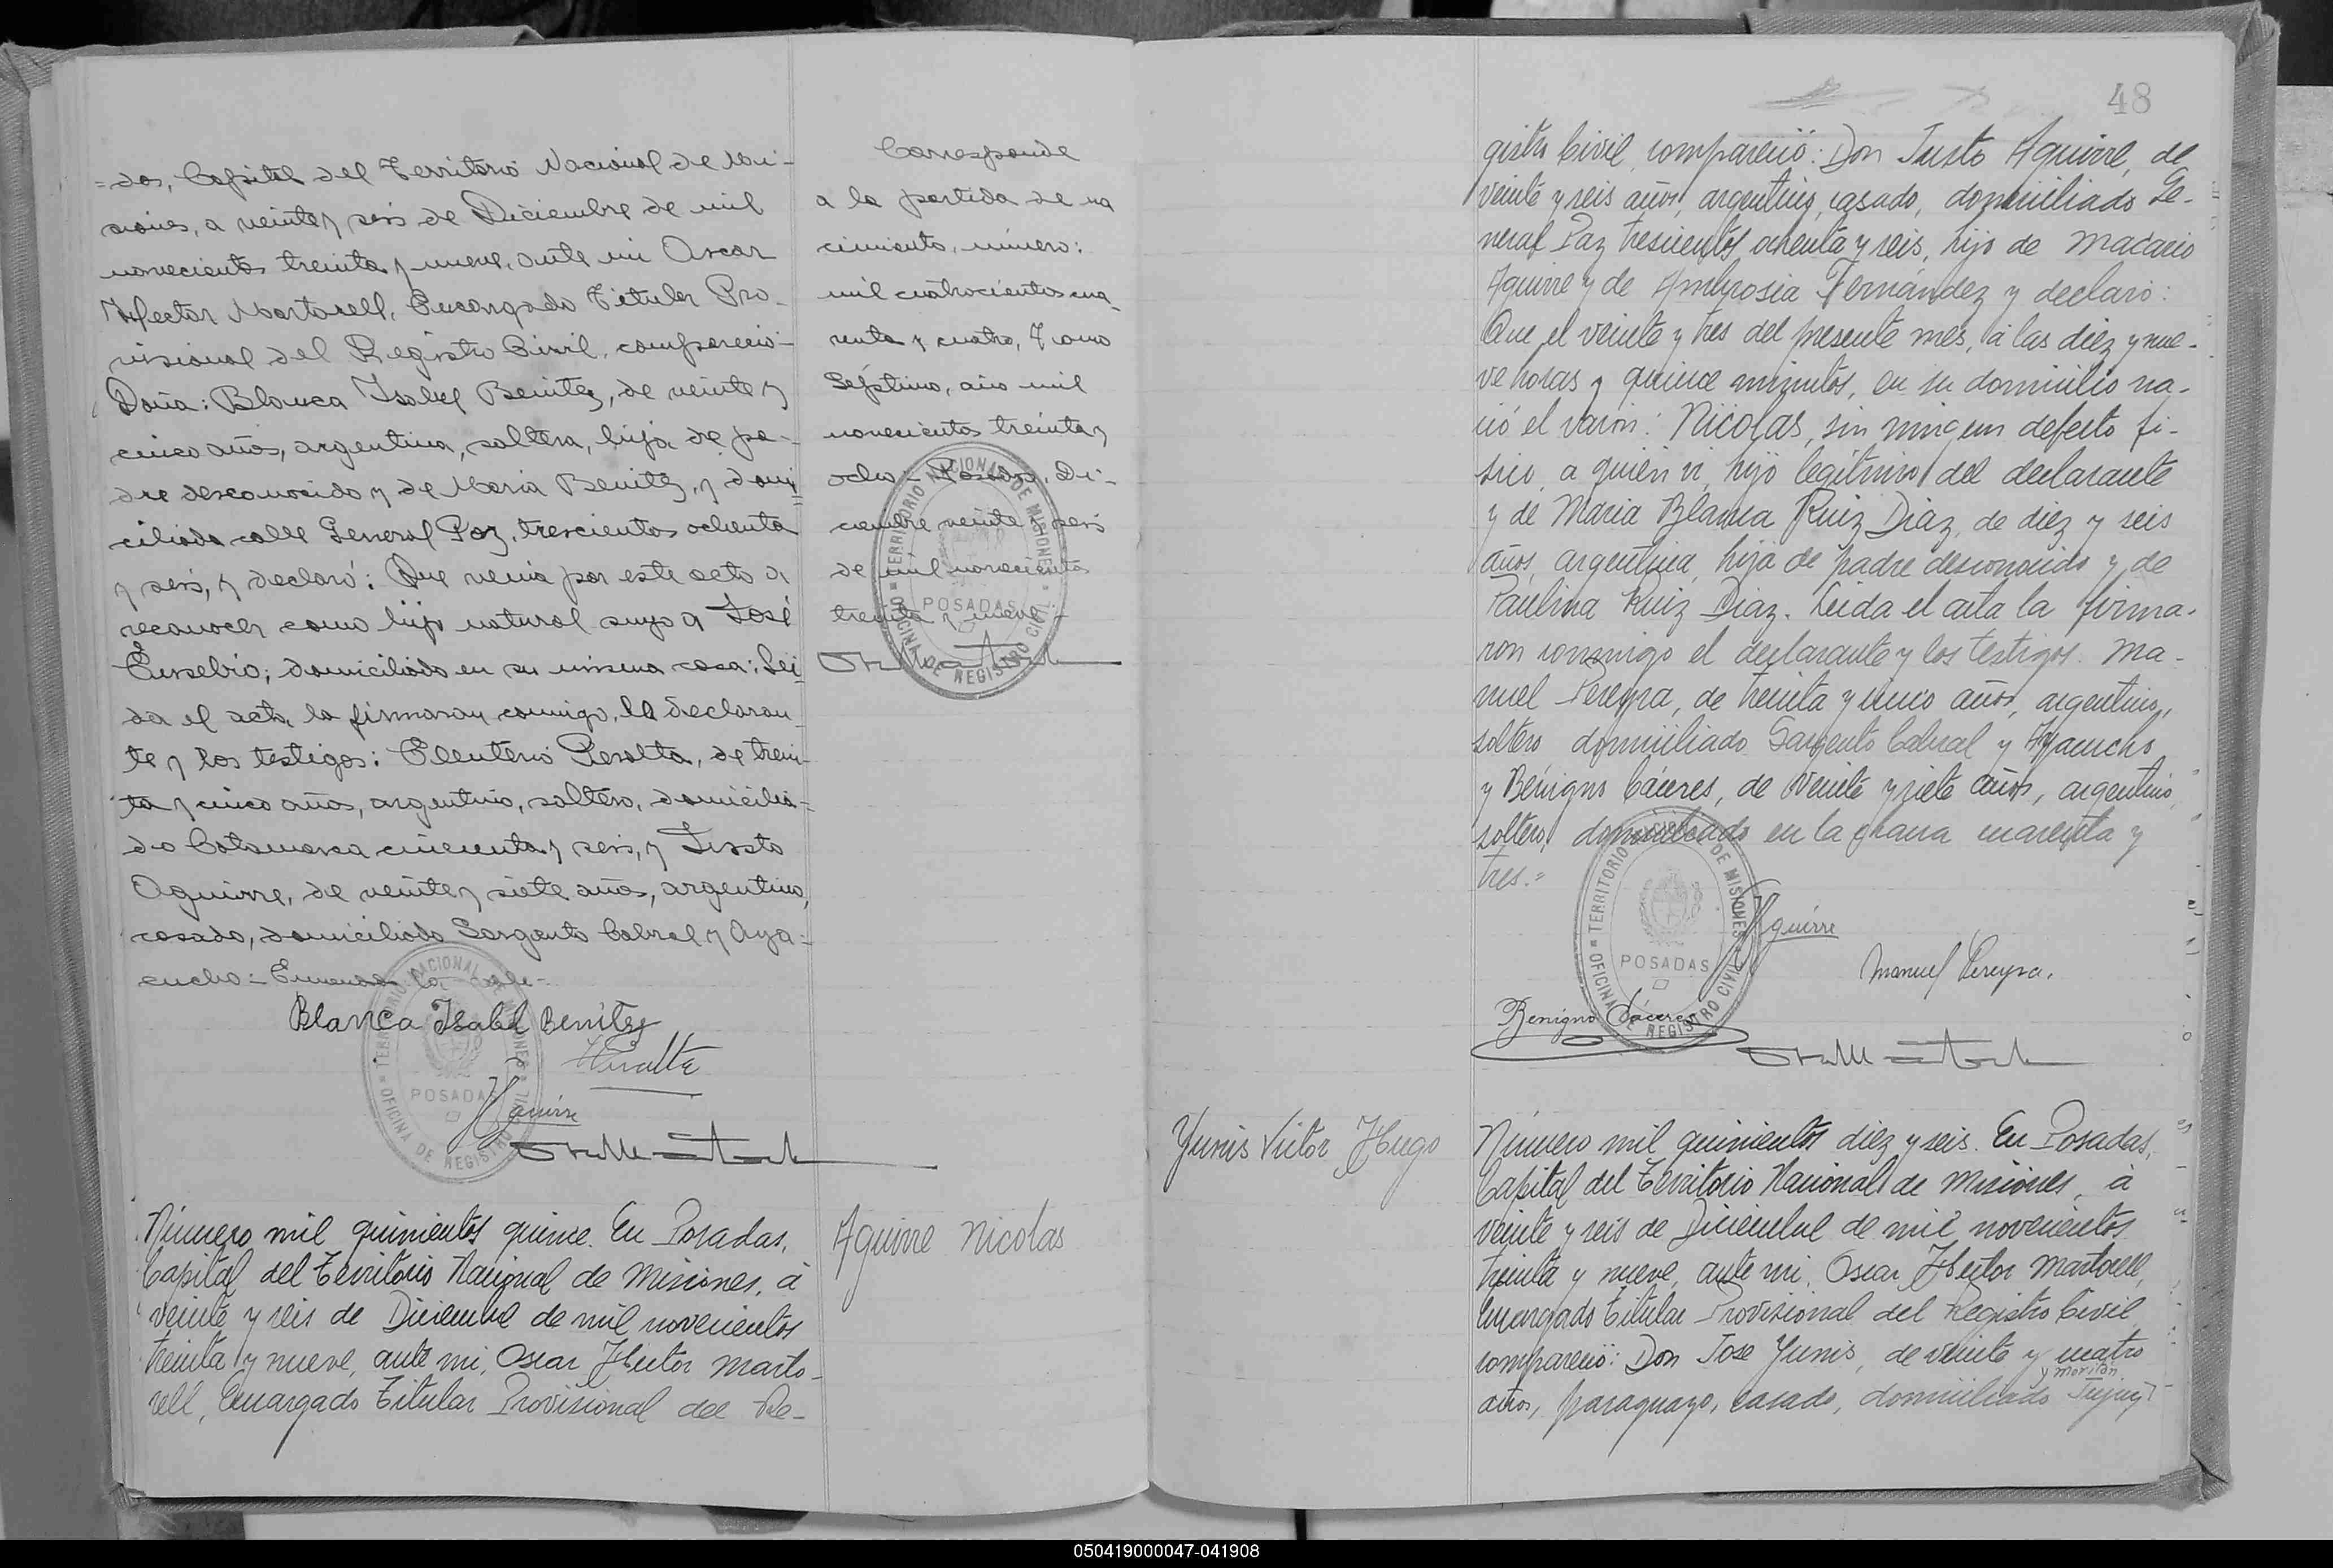 =das, Capital del Territorio Nacional de Mi-
siones, a veinte y seis de Diciembre de mil
novecientos treinta y nueve, ante mi Oscar
Hector Martorell, Encargado Titular Pro-
visional del Registro Civil, compareció-
Doña: Blanca Isabel Benitez, de veinte y
cinco años, argentina, soltera, hija de pa-
dre desconocido y de Maria Benitez, y domi
ciliada calle General Paz, trescientos ochenta
y seis, y declaró: Que venia por este acto a
reconocer como hijo natural suyo a José
Eusebio; domiciliado en su misma casa: Lei
da el acta, la firmaron conmigo, la declaran-
te y los testigos: Eleuterio Peralta, de trein-
ta y cinco años, argentino, soltero, domicilia-
do Catamarca cincuenta y seis, y Justo
Aguirre, de veinte y siete años, argentino,
casado, domiciliado Sargento Cabral y Aya-
cucho:
Blanca Isabel Benitez
HPeralta
JAguirre
TERRITORIO NACIONAL DE MISIONES
POSADAS
OFICINA DE REGISTRO CIVIL
Corresponde
a la partida de na
cimiento, número:
mil cuatrocientos cua
renta y cuatro, Tomo
Séptimo, año mil
novecientos treinta y
ocho = Posadas, Di-
ciembre veinte y seis
de mil novecientos
treinta y nueve
TERRITORIO NACIONAL DE MISIONES
POSADAS
OFICINA DE REGISTRO CIVIL
Aguirre Nicolas
Número mil quinientos quince. En Posadas,
Capital del Territorio Nacional de Misiones, á
veinte y seis de Diciembre de mil novecientos
treinta y nueve, ante mi, Oscar Hector Marto-
rell, Encargado Titular Provisional del Re-
48
gistro Civil, compareció: Don Justo Aguirre, de
veinte y seis años, argentino, casado, domiciliado Ge-
neral Paz trescientos ochenta y seis, hijo de Macario
Aguirre y de Ambrosia Fernández y declaró:
Que el veinte y tres del presente mes, á las diez y nue-
ve horas y quince minutos, en su domicilio na-
ció el varón: Nicolas, sin ningun defecto fi-
sico, a quién vi, hijo legítimo del declarante
y de Maria Blanca Ruiz Diaz, de diez y seis
años, argentina, hija de padre desconocido y de
Paulina Ruiz Diaz. Leida el acta la firma-
ron conmigo el declarante y los testigos. Ma-
nuel Pereyra, de treinta y cinco años, argentino,
soltero domiciliado Sargento Cabral y Ayacucho
y Bénigno Cáceres, de veinte y siete años, argentino,
soltero, domiciliado en la chacra cuarenta y
tres.=
JAguirre
Manuel Pereyra.
Benigno Cáceres
TERRITORIO NACIONAL DE MISIONES
POSADAS
OFICINA DE REGISTRO CIVIL
Yunis Victor Hugo
Número mil quinientos diez y seis. En Posadas,
Capital del Territorio Nacional de Misiones, á
veinte y seis de Diciembre de mil novecientos
treinta y nueve, ante mi, Oscar Hector Martorell,
Encargado Titular Provisional del Registro Civil,
compareció: Don Jose Yunis, de veinte y cuatro
años, paraguayo, casado, domiciliado Jujuy
050419000047-041908